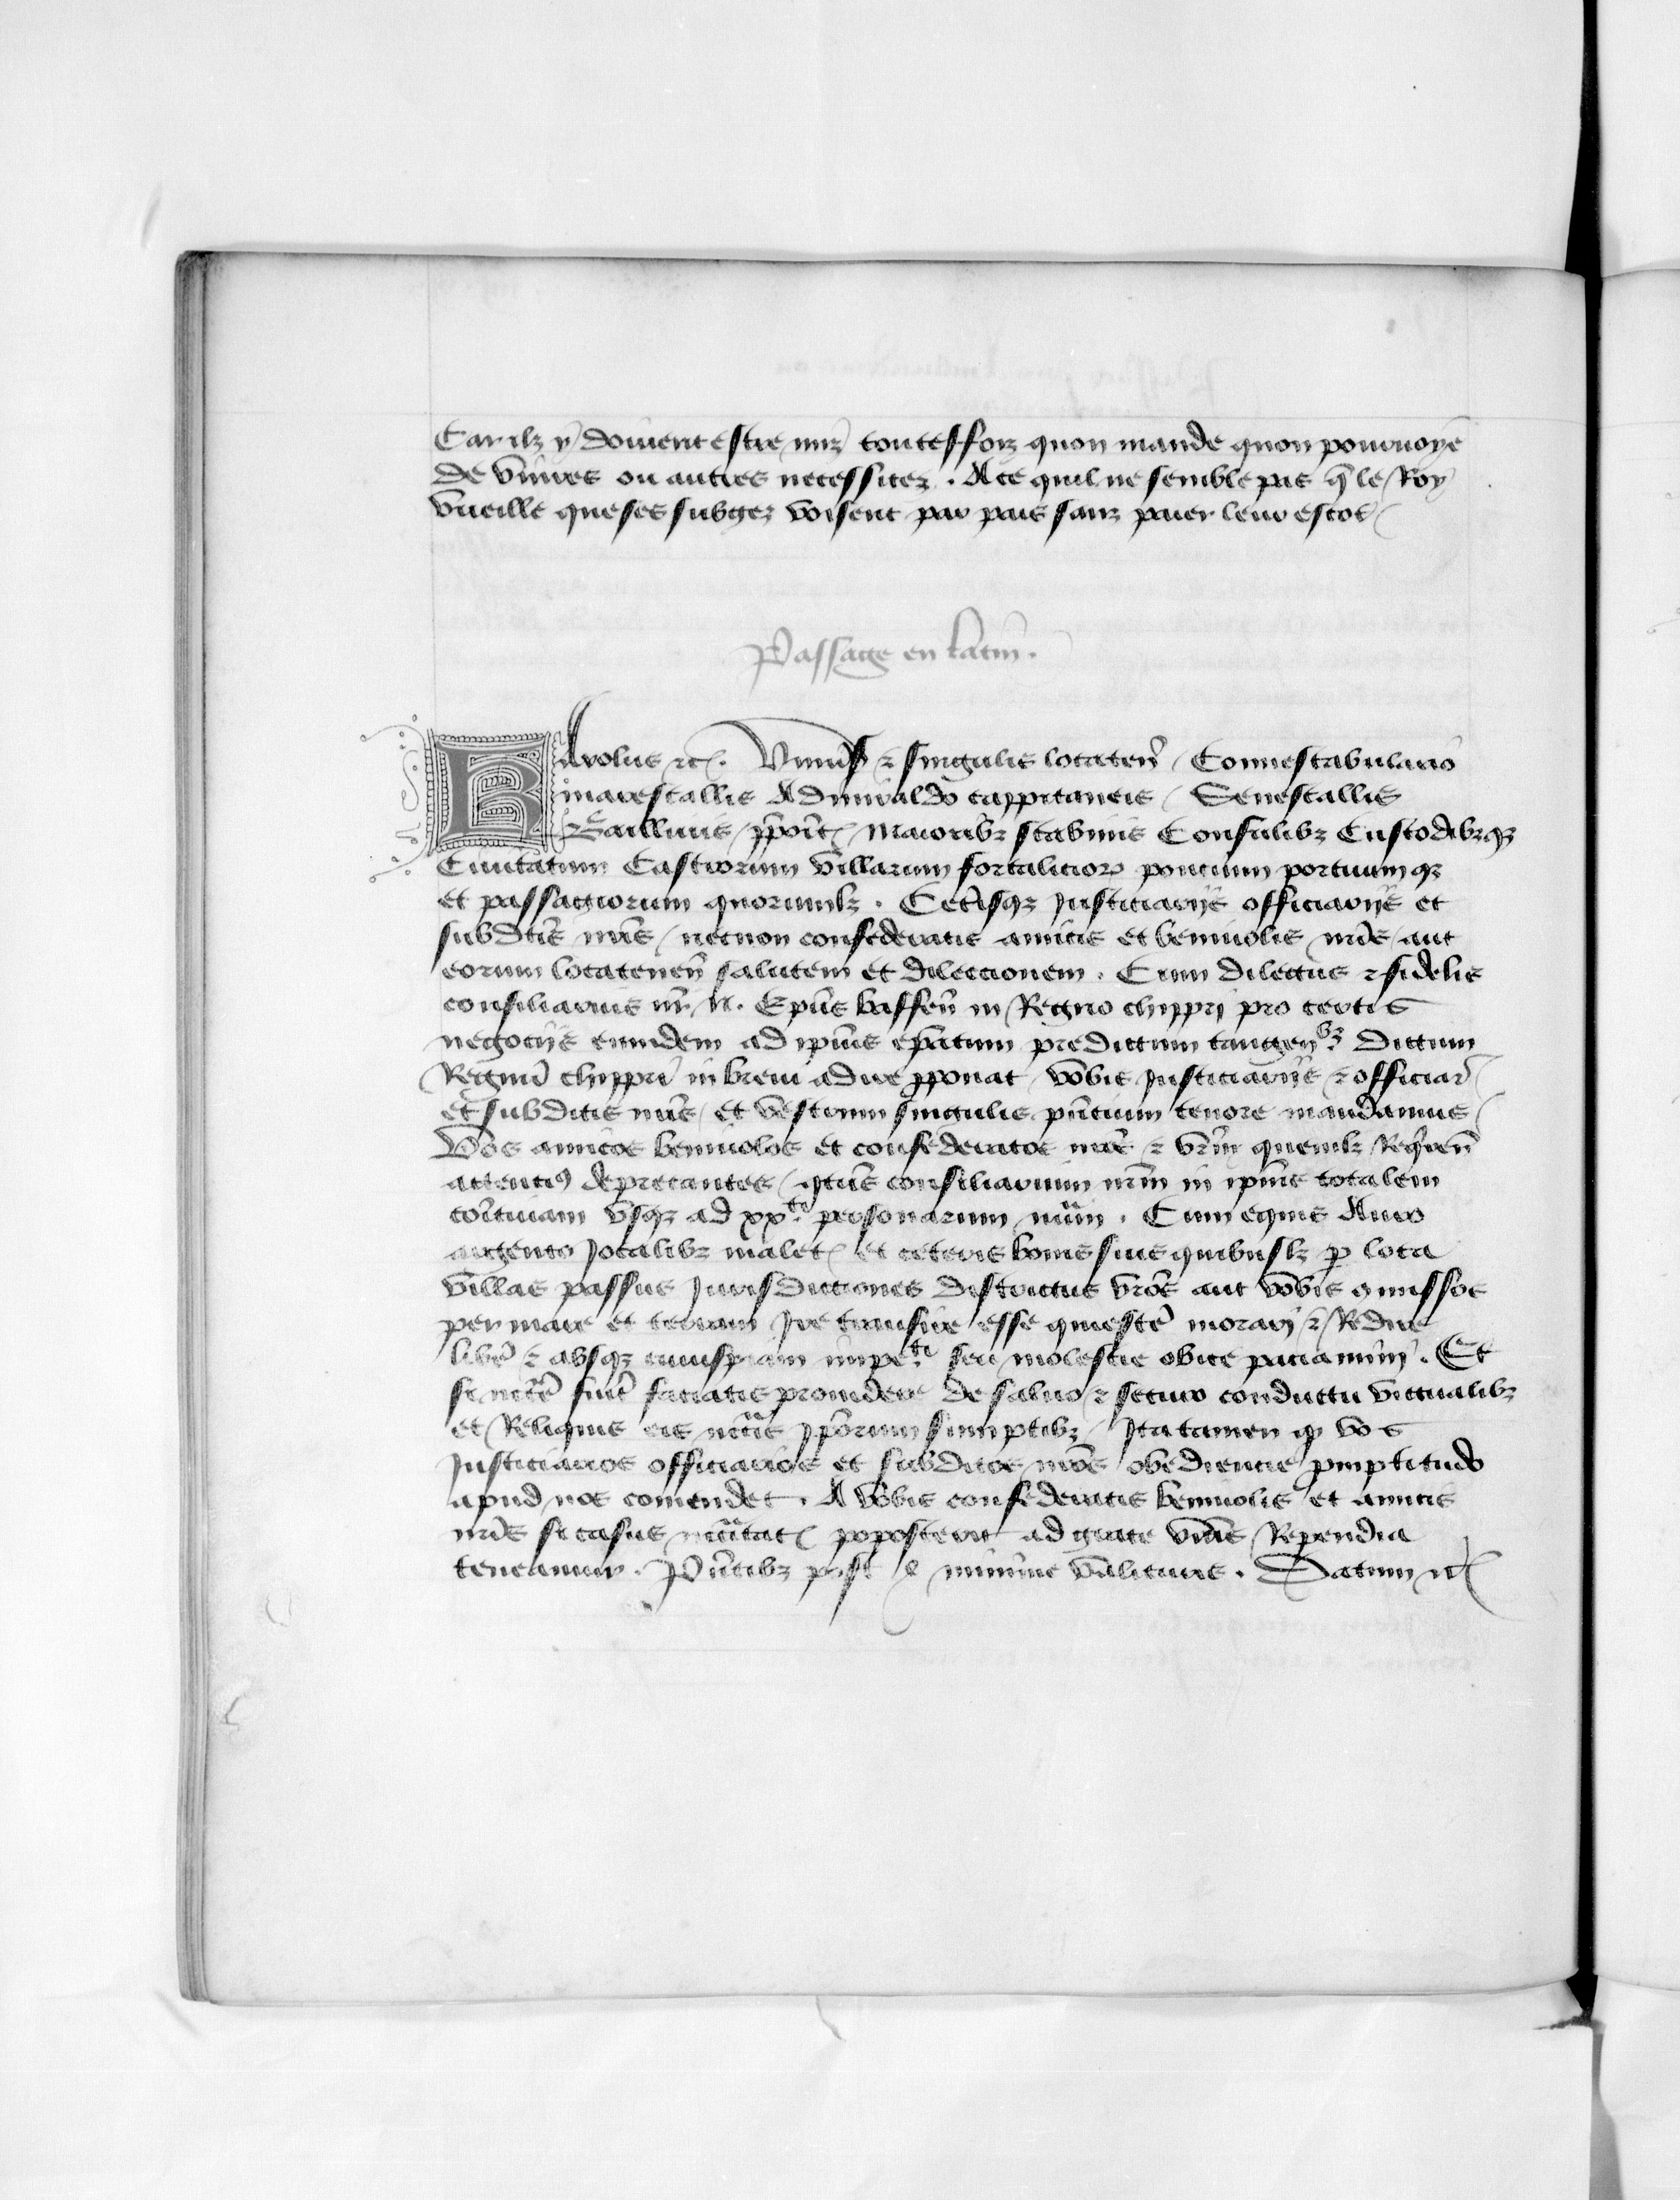 Car ilz y doiuent estre mis toutesfoiz quon mande quon pouruoye
de viures ou autres necessitez . A ce quil ne semble pas q̃ le Roy
vueille que ses subgez voisent par pais sanz paier leur escot
Passage en latin .
Karolus etc. Vniũs ⁊ singulis locateñ / Connestabulario
marescallis Admiraldo cappitaneis / Senescallis
Bailliuis / p̃poĩt / Maioribꝫ scabinis Consulibꝫ Custodibꝫqꝫ
Ciuitatum Castrorum villarum fortalicioꝝ poncium portuumqꝫ
et passagiorum quorumlꝫ . Cet̃isqꝫ Justiciarijs officiarijs et
subditis nr̃is / necnon confederatis amicis et beniuolis nr̃is / aut
eorum locateneñ salutem et dilectionem . Cum dilectus ⁊ fidelis
consiliarius nr̃ .N. Ep̃us baffeñ in Regno chippri pro certis
negocijs eiusdem ad ip̃ius ep̃atum predictum tangenꝰbꝫ dictum
Regnũ chippri in breui adire ꝓponat / vobis Justiciarijs ⁊ officiar̃
et subditis nr̃is / et vestrum singulis p̃ntium tenore mandamus /
Vos amicos beniuolos et confederatos nr̃os ⁊ vr̃m quemlꝫ Req̃ren̄
attenciꝰ deprecantes / q̃tus consiliarium nr̃m in ip̃ius totalem
comitiuam vsqꝫ ad xx.ti personarum nũm . Cum equis Auro
argento Jocalibꝫ malet̃ et ceteris bonis suis quibuslꝫ ꝑ loca
villas passus Jurisdictiones districtus vr̃os aut vobis ꝯmissos
per mare et terram Jre transire esse quiescẽ morari ⁊ Redire
libẽ ⁊ absqꝫ cuiuspiam impe.ti seu molestie obice paciamini . Et
si nc̃cẽ fuit̃ faciatis prouidere de saluo ⁊ securo conductu victualibꝫ
et Reliquis eis nc̃ĩis ip̃orum sumptibꝫ / Ita tamen qꝫ vos
Justiciarios officiarios et subditos nr̃os obediencie ꝓmptitudo
apud nos comendet . A vobis confederatis beniuolis et amicis
nr̃is si casus nc̃ĩtat̃ poposcerit ad grate vicis Rependia
teneamur . P̃ntibꝫ post minime valituris . Datum etc